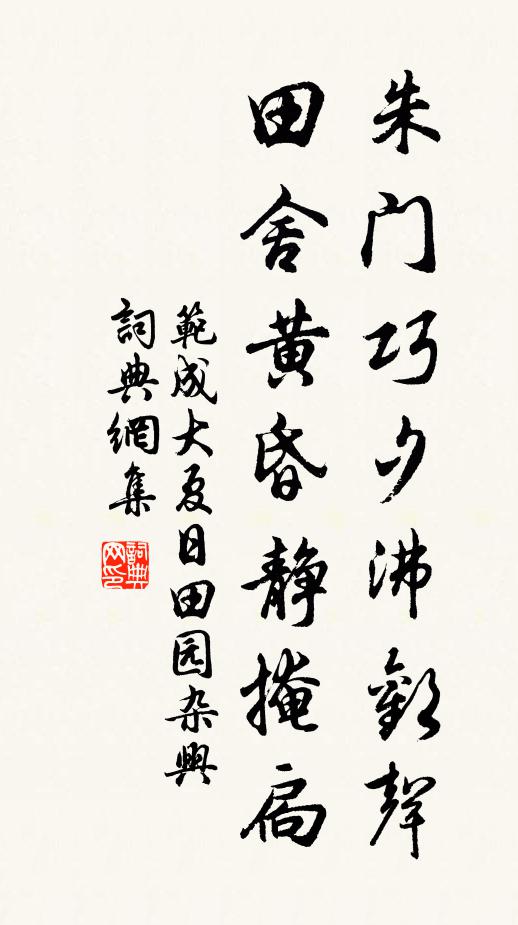 朱门巧夕沸歡聲
田舍黄昏静掩扃
範成大夏日田园杂興
詞典網集
詞典网印